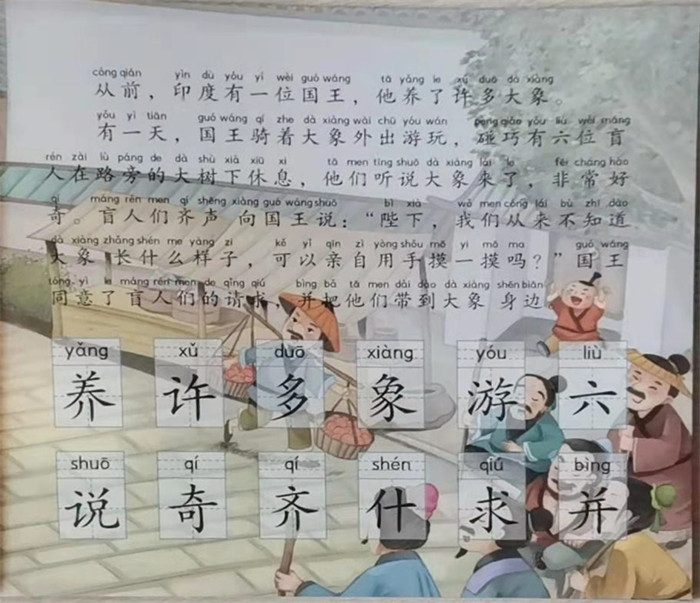 cóng qián yìn dù yǒu yí wèi guó wáng tā yǎng le xǔ duō dà xiàng
从前，印度有一位国王，他养了许多大象。
yǒu yì tiān guó wáng qí zhe dà xiàng wài chū yóu wán pèng qiǎo yǒu liù wèi máng
有一天，国王骑着大象外出游玩，碰巧有六位盲
rén zài lù páng de dà shù xià xiū xi tā men tīng shuō dà xiàng lái le fēi cháng hào
人在路旁的大树下休息，他们听说大象来了，非常好
qí máng rén men qí shēng xiàng guó wáng shuō bì xià wǒ men cóng lái bù zhī dào
奇。盲人们齐声向国王说：“陛下，我们从来不知道
dà xiàng zhǎng shén me yàng zi kě yǐ qīn zì yòng shǒu mō yi mō ma guó wáng
大象长什么样子，可以亲自用手摸一摸吗？”国王
tóng yì le máng rén men de qǐng qiú bìng bǎ tā men dài dào dà xiàng shēn biān
同意了盲人们的请求，并把他们带到大象身边
yǎng xǔ duō xiàng yóu liù
养 许 多 象 游 六
shuō qí qí shén qiú bìng
说 奇 齐 什 求 并